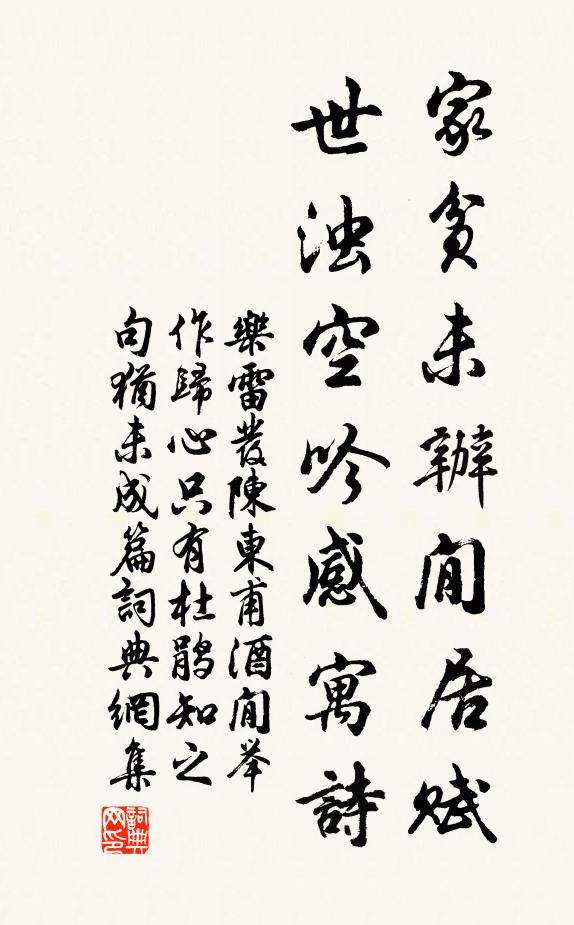 家貧未辦閒居賦
世浊空吟感寓詩
樂雷發陳東甫酒閒举
作歸心只有杜鵑知之
句猶未成篇詞典網集
詞典网印